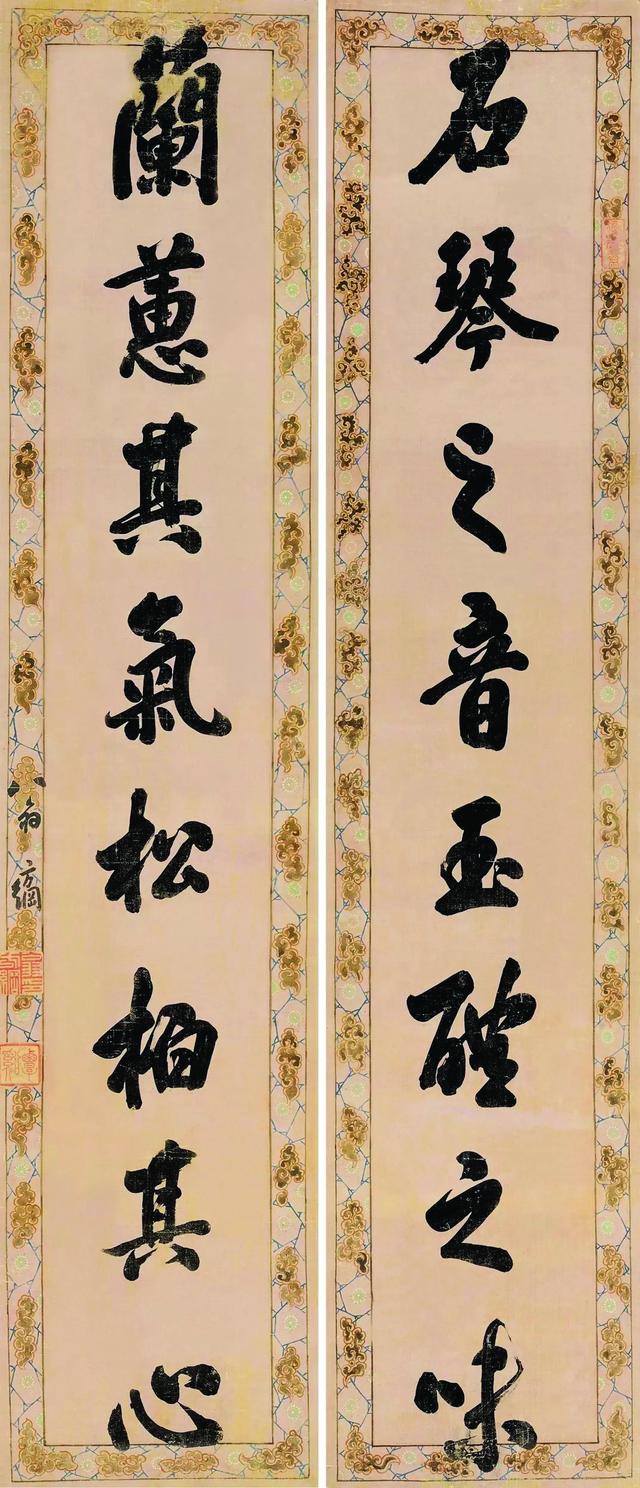 石琴之音玉醴之味
蘭蕙其氣松柏其心
翁方綱